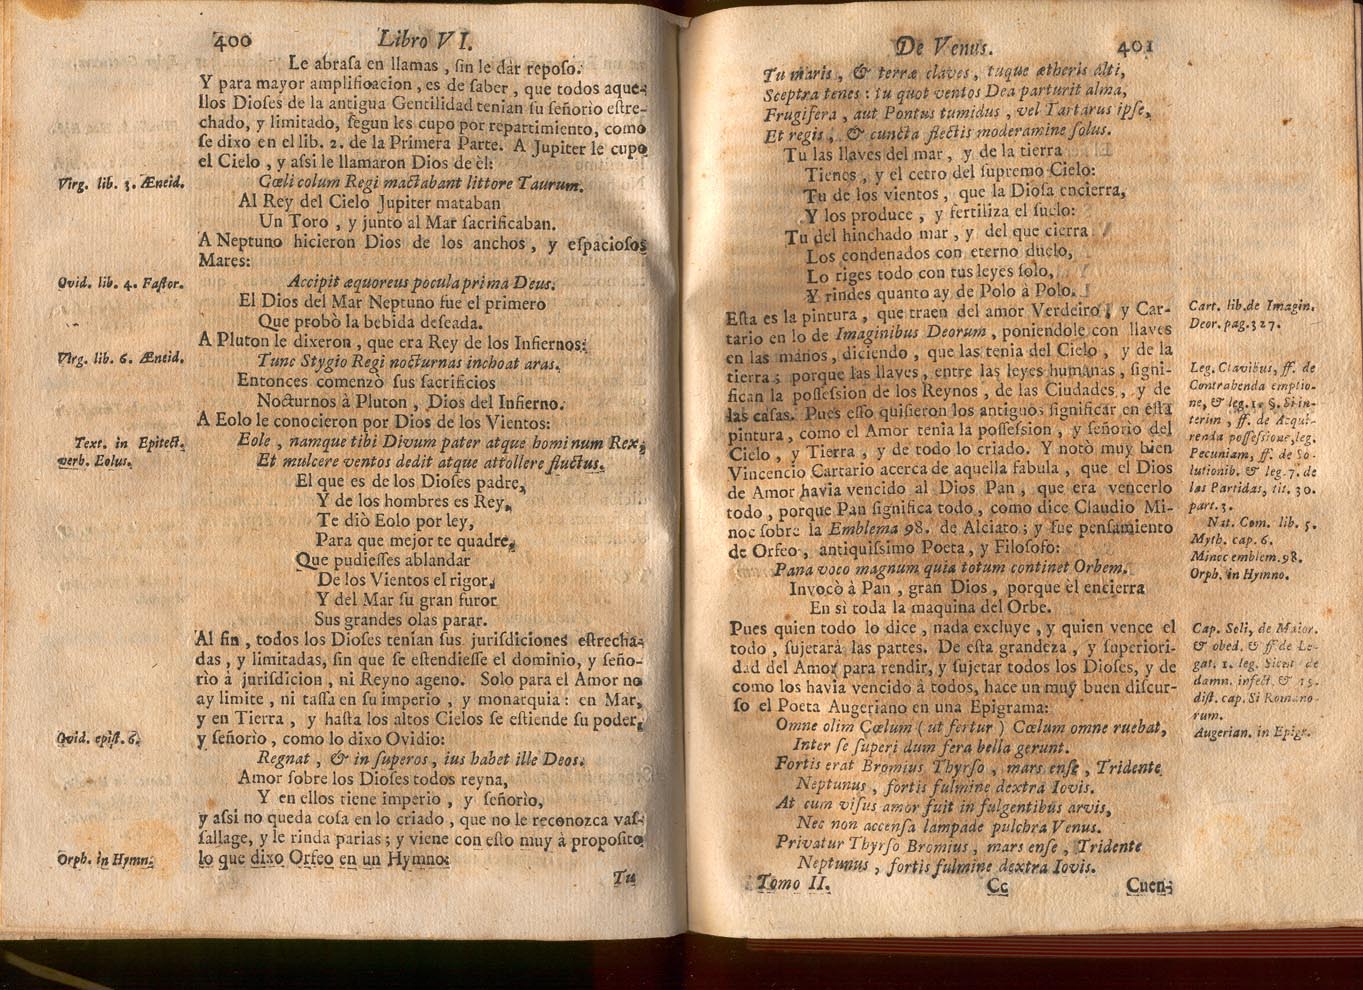 400 Libro VI.
Le abrasa en llamas, sin le dàr reposo.
Y para mayor amplificacion, es de saber, que todos aque-
llos Dioses de la antigua Gentilidad tenian su señorio estre-
chado, y limitado, segun les cupo por repartimiento, como
se dixo en el lib. 2. de la Primera Parte. A Jupiter le cupo
el Cielo, y assi le llamaron Dios de èl:
Virg. lib. 3. Æneid.
Cœli colum Regi mactabant littore Taurum.
Al Rey del Cielo Jupiter mataban
Un Toro, y junto al Mar sacrificaban.
A Neptuno hicieron Dios de los anchos, y espaciosos
Mares:
Ovid. lib. 4. Fastor.
Accipit æquoreus pocula prima Deus.
El Dios del Mar Neptuno fue el primero
Que probò la bebida deseada.
A Pluton le dixeron, que era Rey de los Infiernos:
Virg. lib. 6. Æneid.
Tunc Stygio Regi nocturnas inchoat aras.
Entonces comenzò sus sacrificios
Nocturnos à Pluton, Dios del Infierno.
A Eolo le conocieron por Dios de los Vientos:
Text. in Epitect.
verb. Eolus.
Eole, namque tibi Divum pater atque hominum Rex,
Et mulcere ventos dedit atque attollere fluctus.
El que es de los Dioses padre,
Y de los hombres es Rey,
Te diò Eolo por ley,
Para que mejor te quadre,
Que pudiesses ablandar
De los Vientos el rigor,
Y del Mar su gran furor
Sus grandes olas parar.
Al fin, todos los Dioses tenian sus jurisdiciones estrecha-
das, y limitadas, sin que se estendiesse el dominio, y seño-
rìo à jurisdicion, ni Reyno ageno. Solo para el Amor no
ay limite, ni tassa en su imperio, y monarquia: en Mar,
y en Tierra, y hasta los altos Cielos se estiende su poder,
y señorio, como lo dixo Ovidio:
Ovid. epist. 6.
Regnat, & in superos, ius habet ille Deos.
Amor sobre los Dioses todos reyna,
Y en ellos tiene imperio, y señorìo,
y assi no queda cosa en lo criado, que no le reconozca vas-
sallage, y le rinda parias; y viene con esto muy à proposito
lo que dixo Orfeo en un Hymno:
Orph. in Hymn:
Tu
De Venus. 401
Tu maris, & terræ claves, tuque ætheris alti,
Sceptra tenes: tu quot ventos Dea parturit alma,
Frugifera, aut Pontus tumidus, vel Tartarus ipse,
Et regis, & cuncta flectis moderamine solus.
Tu las llaves del mar, y de la tierra
Tienes, y el cetro del supremo Cielo:
Tu de los vientos, que la Diosa encierra,
Y los produce, y fertiliza el suelo:
Tu del hinchado mar, y del que cierra
Los condenados con eterno duelo,
Lo riges todo con tus leyes solo,
Y rindes quanto ay de Polo à Polo.
Esta es la pintura, que traen del amor Verdeiro, y Car-
tario en lo de Imaginibus Deorum, poniendole con llaves
en las manos, diciendo, que las tenia del Cielo, y de la
tierra; porque las llaves, entre las leyes humanas, signi-
fican la possession de los Reynos, de las Ciudades, y de
las casas. Pues esso quisieron los antiguos significar en esta
pintura, como el Amor tenia la possession, y señorio del
Cielo, y Tierra, y de todo lo criado. Y notò muy bien
Vincencio Cartario acerca de aquella fabula, que el Dios
de Amor havia vencido al Dios Pan, que era vencerlo
todo, porque Pan significa todo, como dice Claudio Mi-
noe sobre la Emblema 98. de Alciato; y fue pensamiento
de Orfeo, antiquissimo Poeta, y Filosofo:
Pana voco magnum quia totum continet Orbem.
Invocò à Pan, gran Dios, porque el encierra
En sì toda la maquina del Orbe.
Pues quien todo lo dice, nada excluye, y quien vence el
todo, sujetará las partes. De esta grandeza, y superiori-
dad del Amor para rendir, y sujetar todos los Dioses, y de
como los havia vencido à todos, hace un muy buen discur-
so el Poeta Augeriano en una Epigrama:
Omne olim Cœlum (ut fertur) Cœlum omne ruebat,
Inter se superi dum fera bella gerunt.
Fortis erat Bromius Thyrso, mars ense, Tridente
Neptunus, fortis fulmine dextra Iovis.
At cum visus amor fuit in fulgentibus arvis,
Nec non accensa lampade pulchra Venus.
Privatur Thyrso Bromius, mars ense, Tridente
Neptunus, fortis fulmine dextra Iovis.
Tomo II. Cc Cuen-
Cart. lib. de Imagin.
Deor. pag. 327.
Leg. Clavibus, ff. de
Contrabenda emptio-
ne, & leg. 1. §. Si in-
terim, ff. de Acqui-
renda possessione, leg.
Pecuniam, ff. de So-
lutionib. & leg. 7. de
las Partidas, tit. 30.
part. 3.
Nat. Com. lib. 5.
Myth. cap. 6.
Minoe emblem. 98.
Orph. in Hymno.
Cap. Soli, de Maior.
& obed. & ff. de Le-
gat. 1. leg. Sicut de
damn. infect. & 15.
dist. cap. Si Romano-
rum.
Augerian. in Epigr.